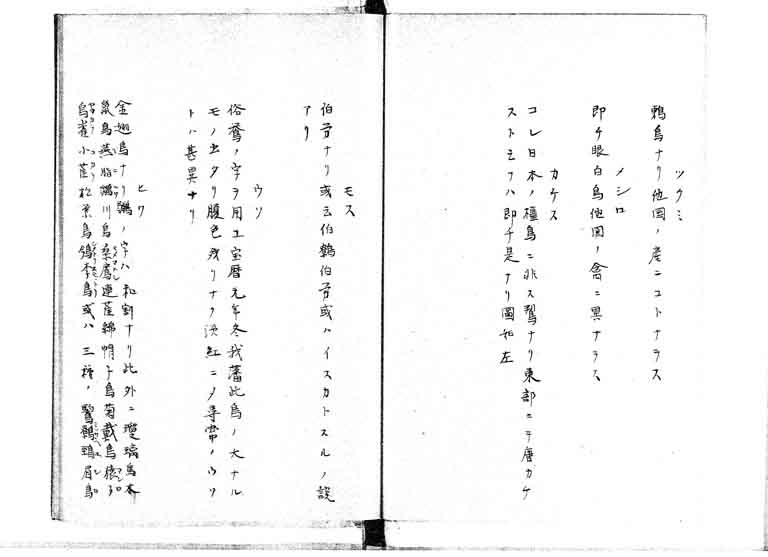 ツクミ
鶇鳥ナリ他国ノ産ニコトナラス
メシロ
即チ眼白鳥他国ノ禽ニ異ナラス
カケス
コレ日本ノ橿鳥ニ非ス鷽ナリ東部ニテ唐カケ
ストミフハ即チ是ナリ圖如左
モス
伯労ナリ或云伯鶴伯労或ハイスカトスルノ説
アリ
ウソ
俗鷽ノ字ヲ用ユ宝暦元年冬我藩此鳥ノ大ナル
モノ出タリ腹色残リナク淡紅ニメ尋常ノウソ
トハ甚異ナリ
ヒワ
金翅鳥ナリ鶸ノ字ハ和訓ナリ此外ニ瓊璃鳥本
鳥燕脂川鳥桑鳫連雀綿帽子鳥菊戴鳥猿子
鳥雀小雀松葉鳥李鳥或ハ三種ノ眉鳥